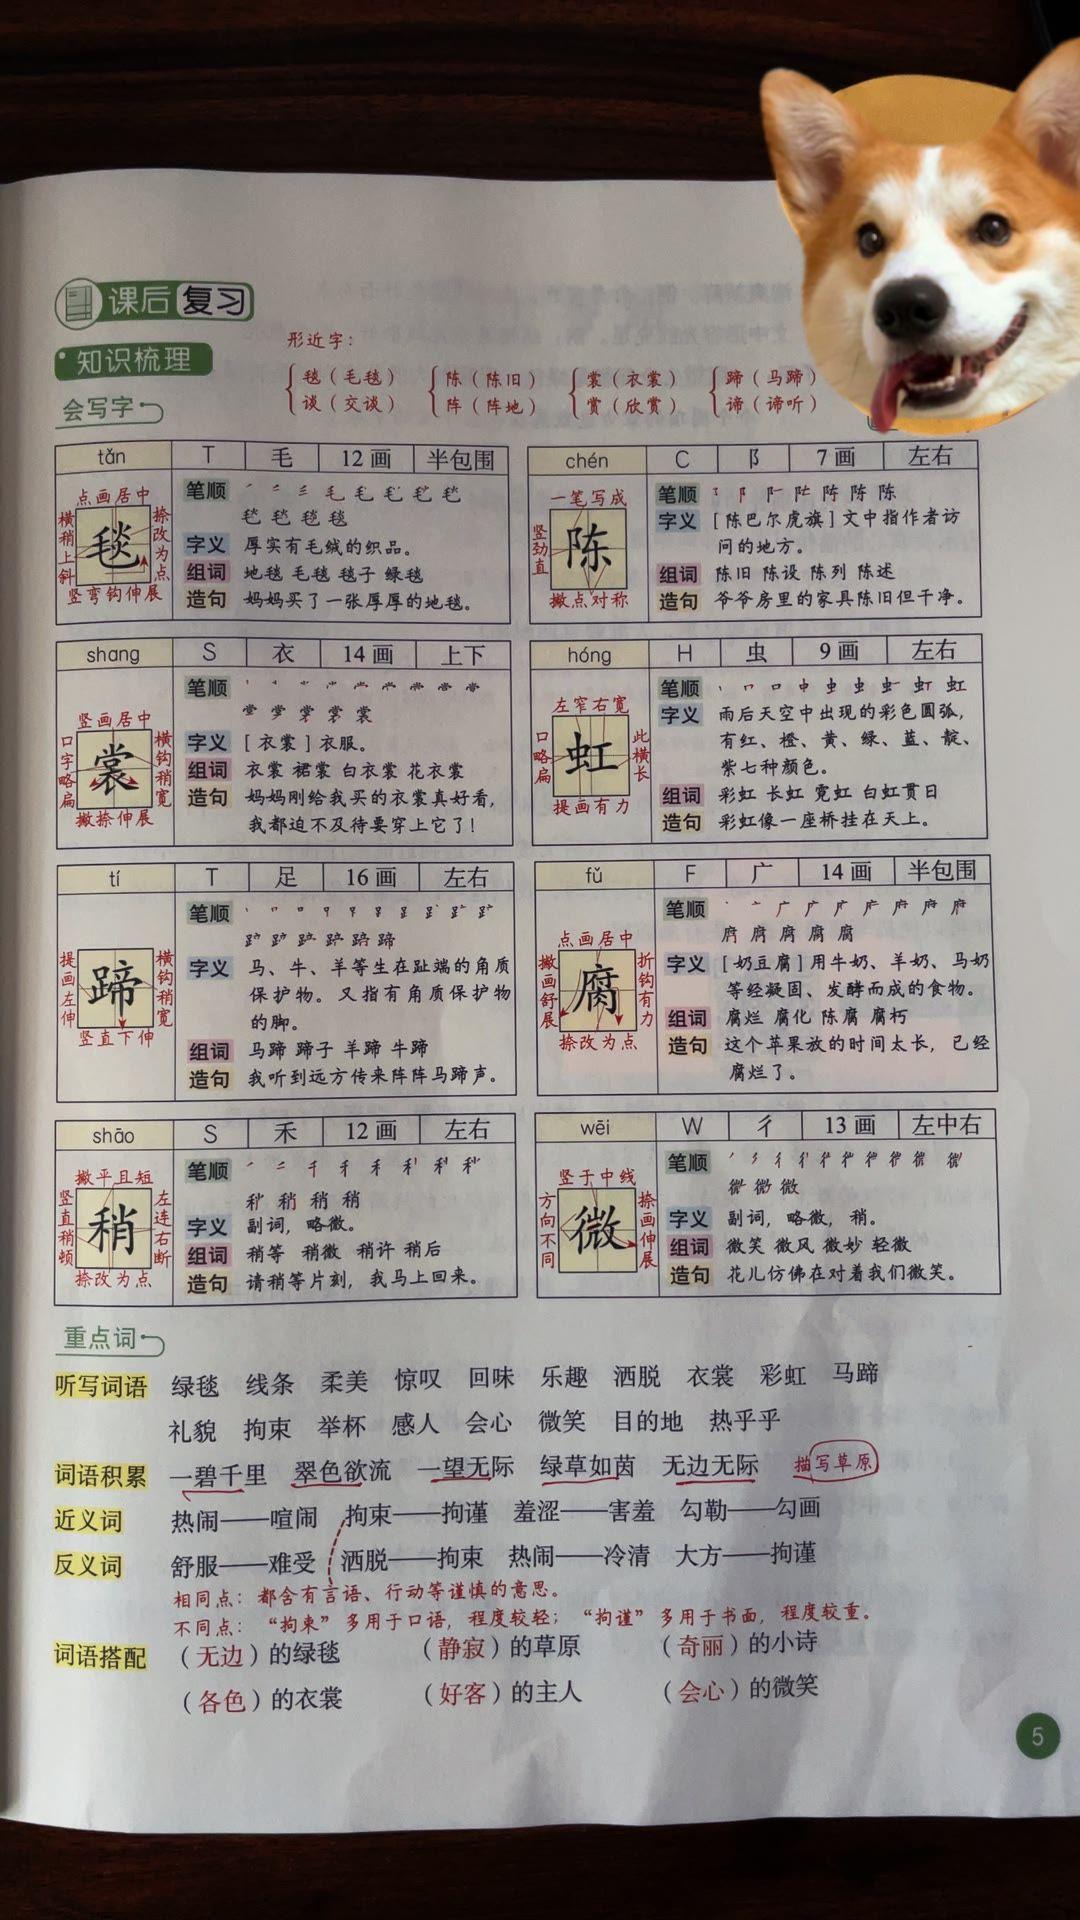 课后复习
知识梳理
形近字：
毯（毛毯） 陈（陈旧） 裳（衣裳） 蹄（马蹄）
谈（交谈） 阵（阵地） 赏（欣赏） 谛（谛听）
会写字
tǎn T 毛 12画 半包围
点画居中
横稍上斜
捺改为点
竖弯钩伸展
毯
笔顺
字义 厚实有毛绒的织品。
组词 地毯 毛毯 毯子 绿毯
造句 妈妈买了一张厚厚的地毯。
chén C 阝 7画 左右
一笔写成
竖劲直
撇点对称
陈
笔顺
字义 [陈巴尔虎旗]文中指作者访
问的地方。
组词 陈旧 陈设 陈列 陈述
造句 爷爷房里的家具陈旧但干净。
shang S 衣 14画 上下
竖画居中
口字略扁
横钩稍宽
撇捺伸展
裳
笔顺
字义 [衣裳]衣服。
组词 衣裳 裙裳 白衣裳 花衣裳
造句 妈妈刚给我买的衣裳真好看，
我都迫不及待要穿上它了！
hóng H 虫 9画 左右
左窄右宽
口略扁
此横长
提画有力
虹
笔顺
字义 雨后天空中出现的彩色圆弧，
有红、橙、黄、绿、蓝、靛、
紫七种颜色。
组词 彩虹 长虹 霓虹 白虹贯日
造句 彩虹像一座桥挂在天上。
tí T 足 16画 左右
提画左伸
横钩稍宽
竖直下伸
蹄
笔顺
字义 马、牛、羊等生在趾端的角质
保护物。又指有角质保护物
的脚。
组词 马蹄 蹄子 羊蹄 牛蹄
造句 我听到远方传来阵阵马蹄声。
fǔ F 广 14画 半包围
点画居中
撇画舒展
折钩有力
捺改为点
腐
笔顺
字义 [奶豆腐]用牛奶、羊奶、马奶
等经凝固、发酵而成的食物。
组词 腐烂 腐化 陈腐 腐朽
造句 这个苹果放的时间太长，已经
腐烂了。
shāo S 禾 12画 左右
撇平且短
竖直稍顿
左连右断
捺改为点
稍
笔顺
字义 副词，略微。
组词 稍等 稍微 稍许 稍后
造句 请稍等片刻，我马上回来。
wēi W 彳 13画 左中右
竖于中线
方向不同
捺画伸展
微
笔顺
字义 副词，略微，稍。
组词 微笑 微风 微妙 轻微
造句 花儿仿佛在对着我们微笑。
重点词
听写词语 绿毯 线条 柔美 惊叹 回味 乐趣 洒脱 衣裳 彩虹 马蹄
礼貌 拘束 举杯 感人 会心 微笑 目的地 热乎乎
词语积累 一碧千里 翠色欲流 一望无际 绿草如茵 无边无际 描写草原
近义词 热闹——喧闹 拘束——拘谨 羞涩——害羞 勾勒——勾画
反义词 舒服——难受 洒脱——拘束 热闹——冷清 大方——拘谨
相同点：都含有言语、行动等谨慎的意思。
不同点：“拘束”多用于口语，程度较轻；“拘谨”多用于书面，程度较重。
词语搭配 （无边）的绿毯 （静寂）的草原 （奇丽）的小诗
（各色）的衣裳 （好客）的主人 （会心）的微笑
5